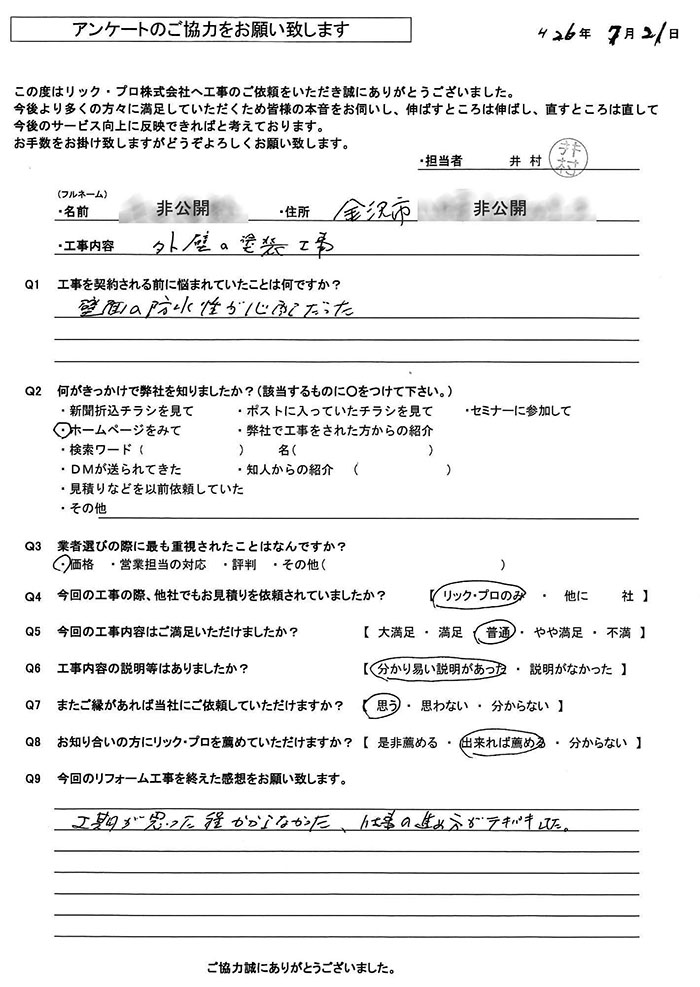 アンケートのご協力をお願い致します
H26年 7月21日
この度はリック・プロ株式会社へ工事のご依頼をいただき誠にありがとうございました。
今後より多くの方々に満足していただくため皆様の本音をお伺いし、伸ばすところは伸ばし、直すところは直して
今後のサービス向上に反映できればと考えております。
お手数をお掛け致しますがどうぞよろしくお願い致します。
・担当者 井村 井村
(フルネーム)
・名前 非公開 ・住所 金沢市 非公開
・工事内容 外壁の塗装工事
Q1 工事を契約される前に悩まれていたことは何ですか?
壁面の防水性が心配だった
Q2 何がきっかけで弊社を知りましたか?(該当するものに〇をつけて下さい。)
・新聞折込チラシを見て ・ポストに入っていたチラシを見て ・セミナーに参加して
・ホームページをみて ・弊社で工事をされた方からの紹介
・検索ワード ( ) 名( )
・DMが送られてきた ・知人からの紹介 ( )
・見積りなどを以前依頼していた
・その他
Q3 業者選びの際に最も重視されたことはなんですか?
・価格 ・営業担当の対応 ・評判 ・その他( )
Q4 今回の工事の際、他社でもお見積りを依頼されていましたか? 【 リック・プロのみ ・ 他に 社 】
Q5 今回の工事内容はご満足いただけましたか? 【 大満足 ・ 満足 ・ 普通 ・ やや満足 ・ 不満 】
Q6 工事内容の説明等はありましたか? 【 分かり易い説明があった ・ 説明がなかった 】
Q7 またご縁があれば当社にご依頼していただけますか? 【 思う ・ 思わない ・ 分からない 】
Q8 お知り合いの方にリック・プロを薦めていただけますか? 【 是非薦める ・ 出来れば薦める ・ 分からない 】
Q9 今回のリフォーム工事を終えた感想をお願い致します。
工期が思った程かからなかった、仕事の進め方がテキパキした。
ご協力誠にありがとうございました。